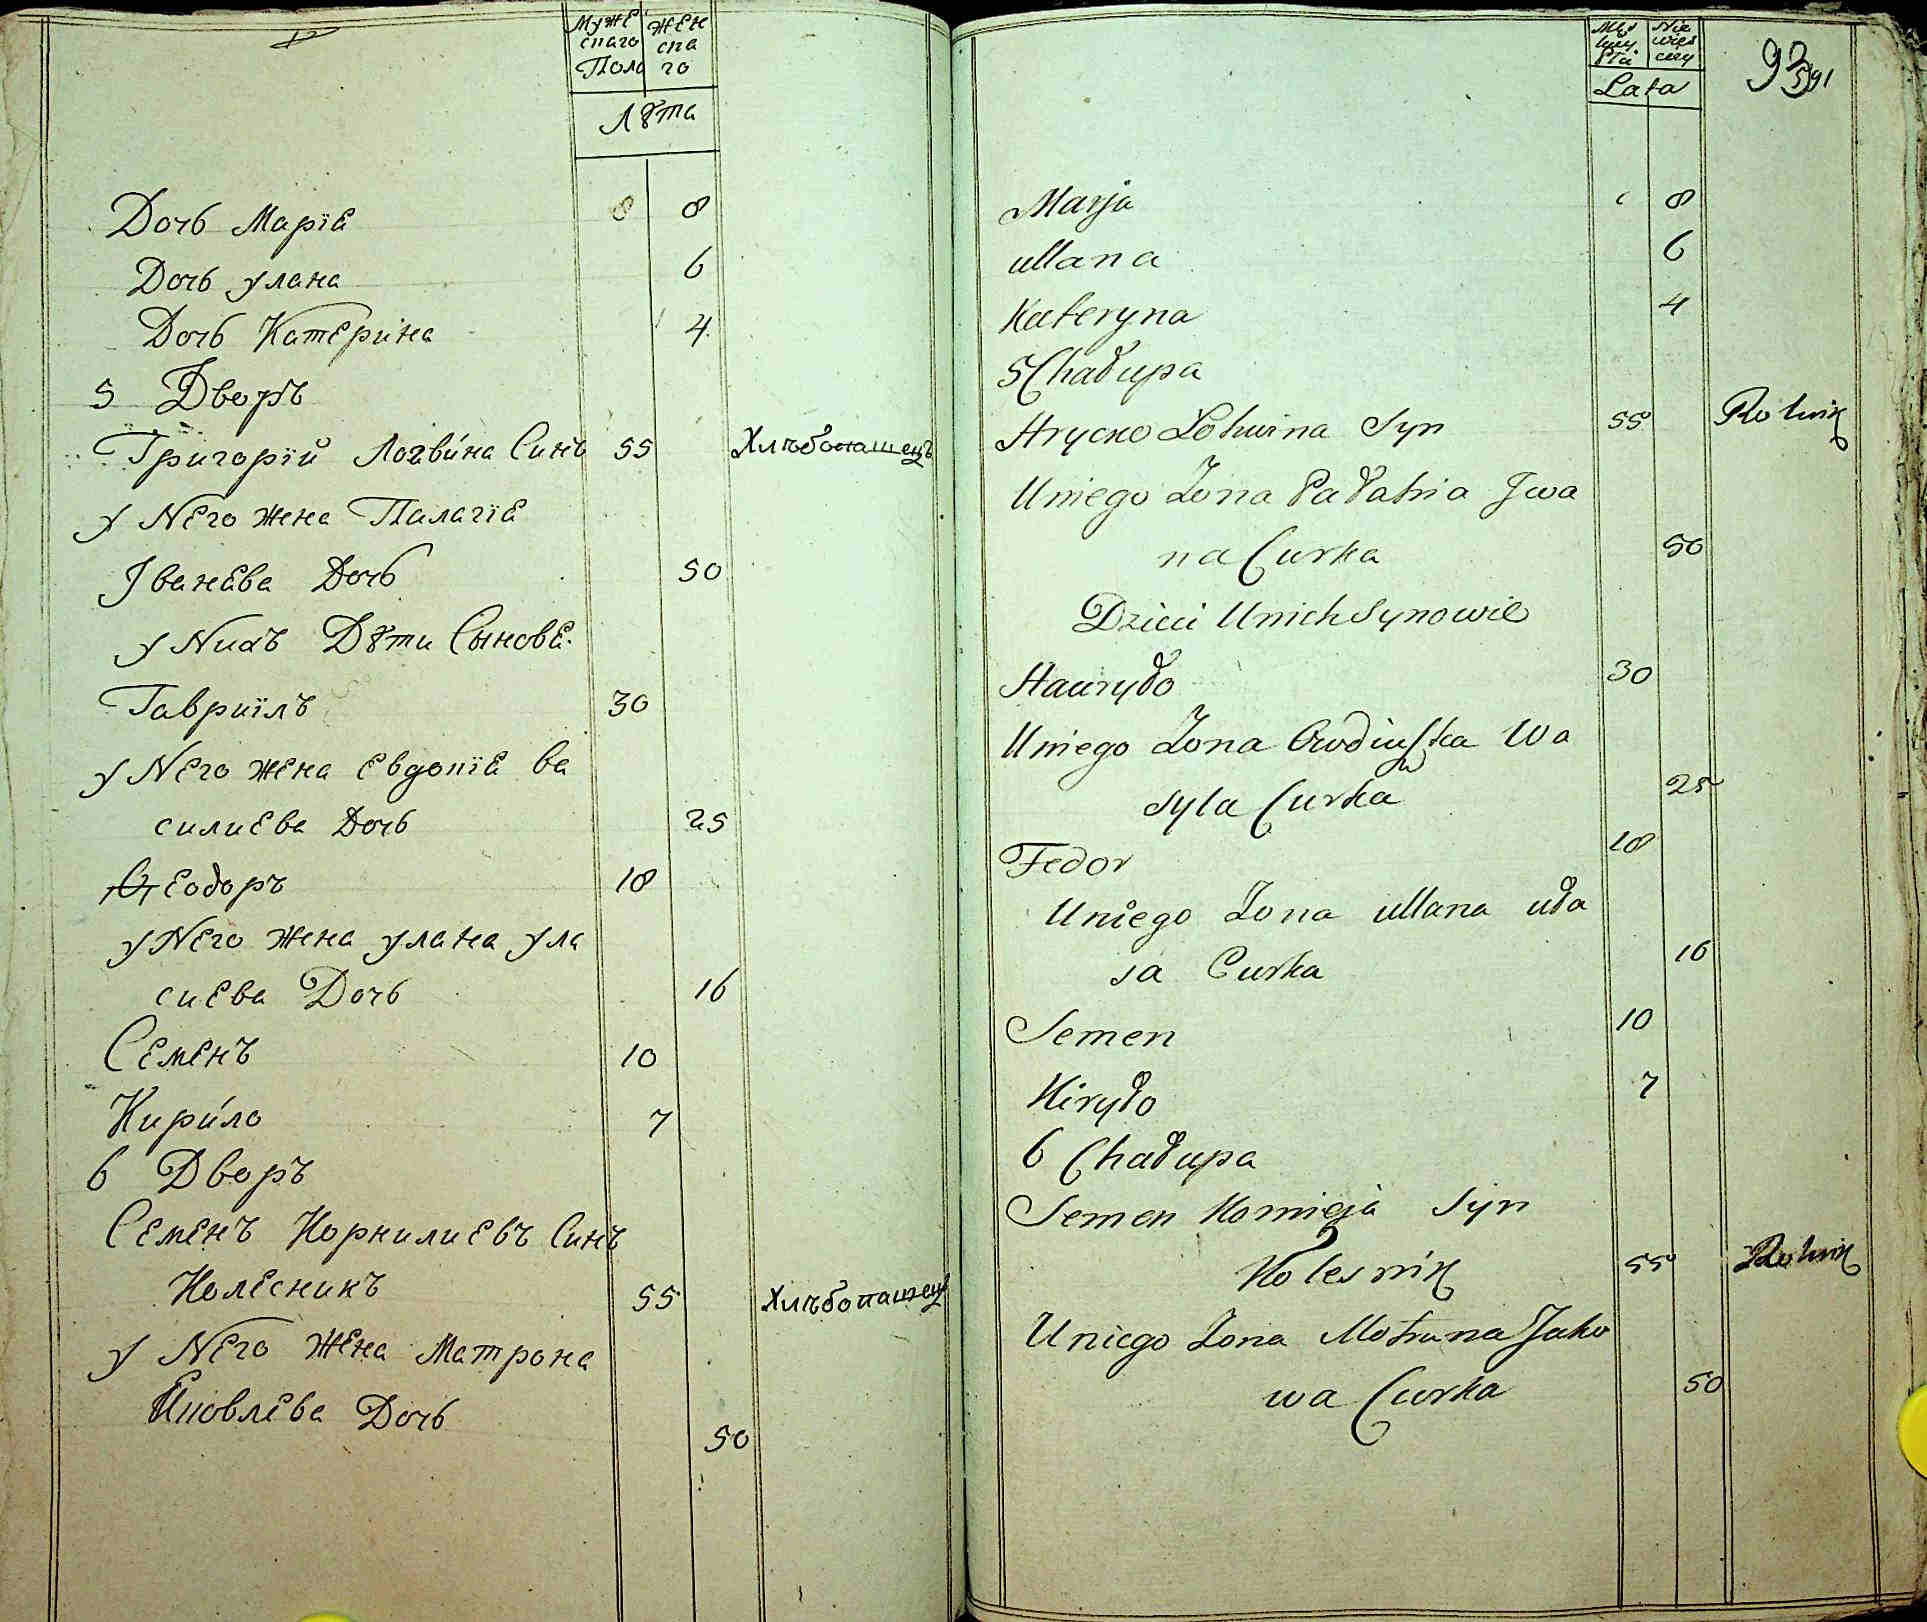 Муже Жен
скаго ска
Пола го
Лѣта
Дочь Маріѣ 8
Дочь улана 6
Дочь Катерина 4
5 Дворъ
Григорій Логвина Синъ 55 Хлѣбопашецъ
у Него жена Палагіѣ
Іванѣва Дочь 50
у Нихъ Дѣти Сыновѣ.
Гавриілъ 30
у Него жена Евдокіѣ ва
силиева Дочь 25
Ѳеодоръ 18
у Него жена улана ула
сиева Дочь 16
Семенъ 10
Кирило 7
6 Дворъ
Семенъ Корнилиевъ Синъ
Колесникъ 55 Хлѣбопашецъ
у Него Жена Матрона
Яковлева Дочь 50
Lata
Marja 8
Ullana 6
Kateryna 4
5 Chałupa
Hrycko Lohwina Syn 55 Rolnik
Uniego Żona Pałahia Jwa
na Curka 50
Dzieci Unich Synowie
Hawryło 30
Uniego Żona Owdiuszka Wa
syla Curka 25
Fedor 18
Uniego Żona Ullana uła
sa Curka 16
Semen 10
Kiryło 7
6 Chałupa
Semen Kornieja Syn
Kolesnik 55 Rolnik
Uniego Żona Motruna Jako
wa Curka 50